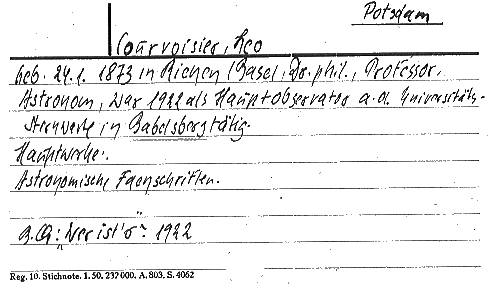 Potsdam
Courvoisier, Leo
geb. 24.1. 1873 in Riehen/Basel, Dr. phil., Professor,
Astronom, war 1922 als Hauptobservator a.d. Universitäts-
sternwarte in Babelsberg tätig.
Hauptwerke:
Astronomische Fachschriften.
B.Q: "Wer ist's" 1922
Reg. 10. Stichnote. 1. 50. 237 000. A. 803. S. 4062